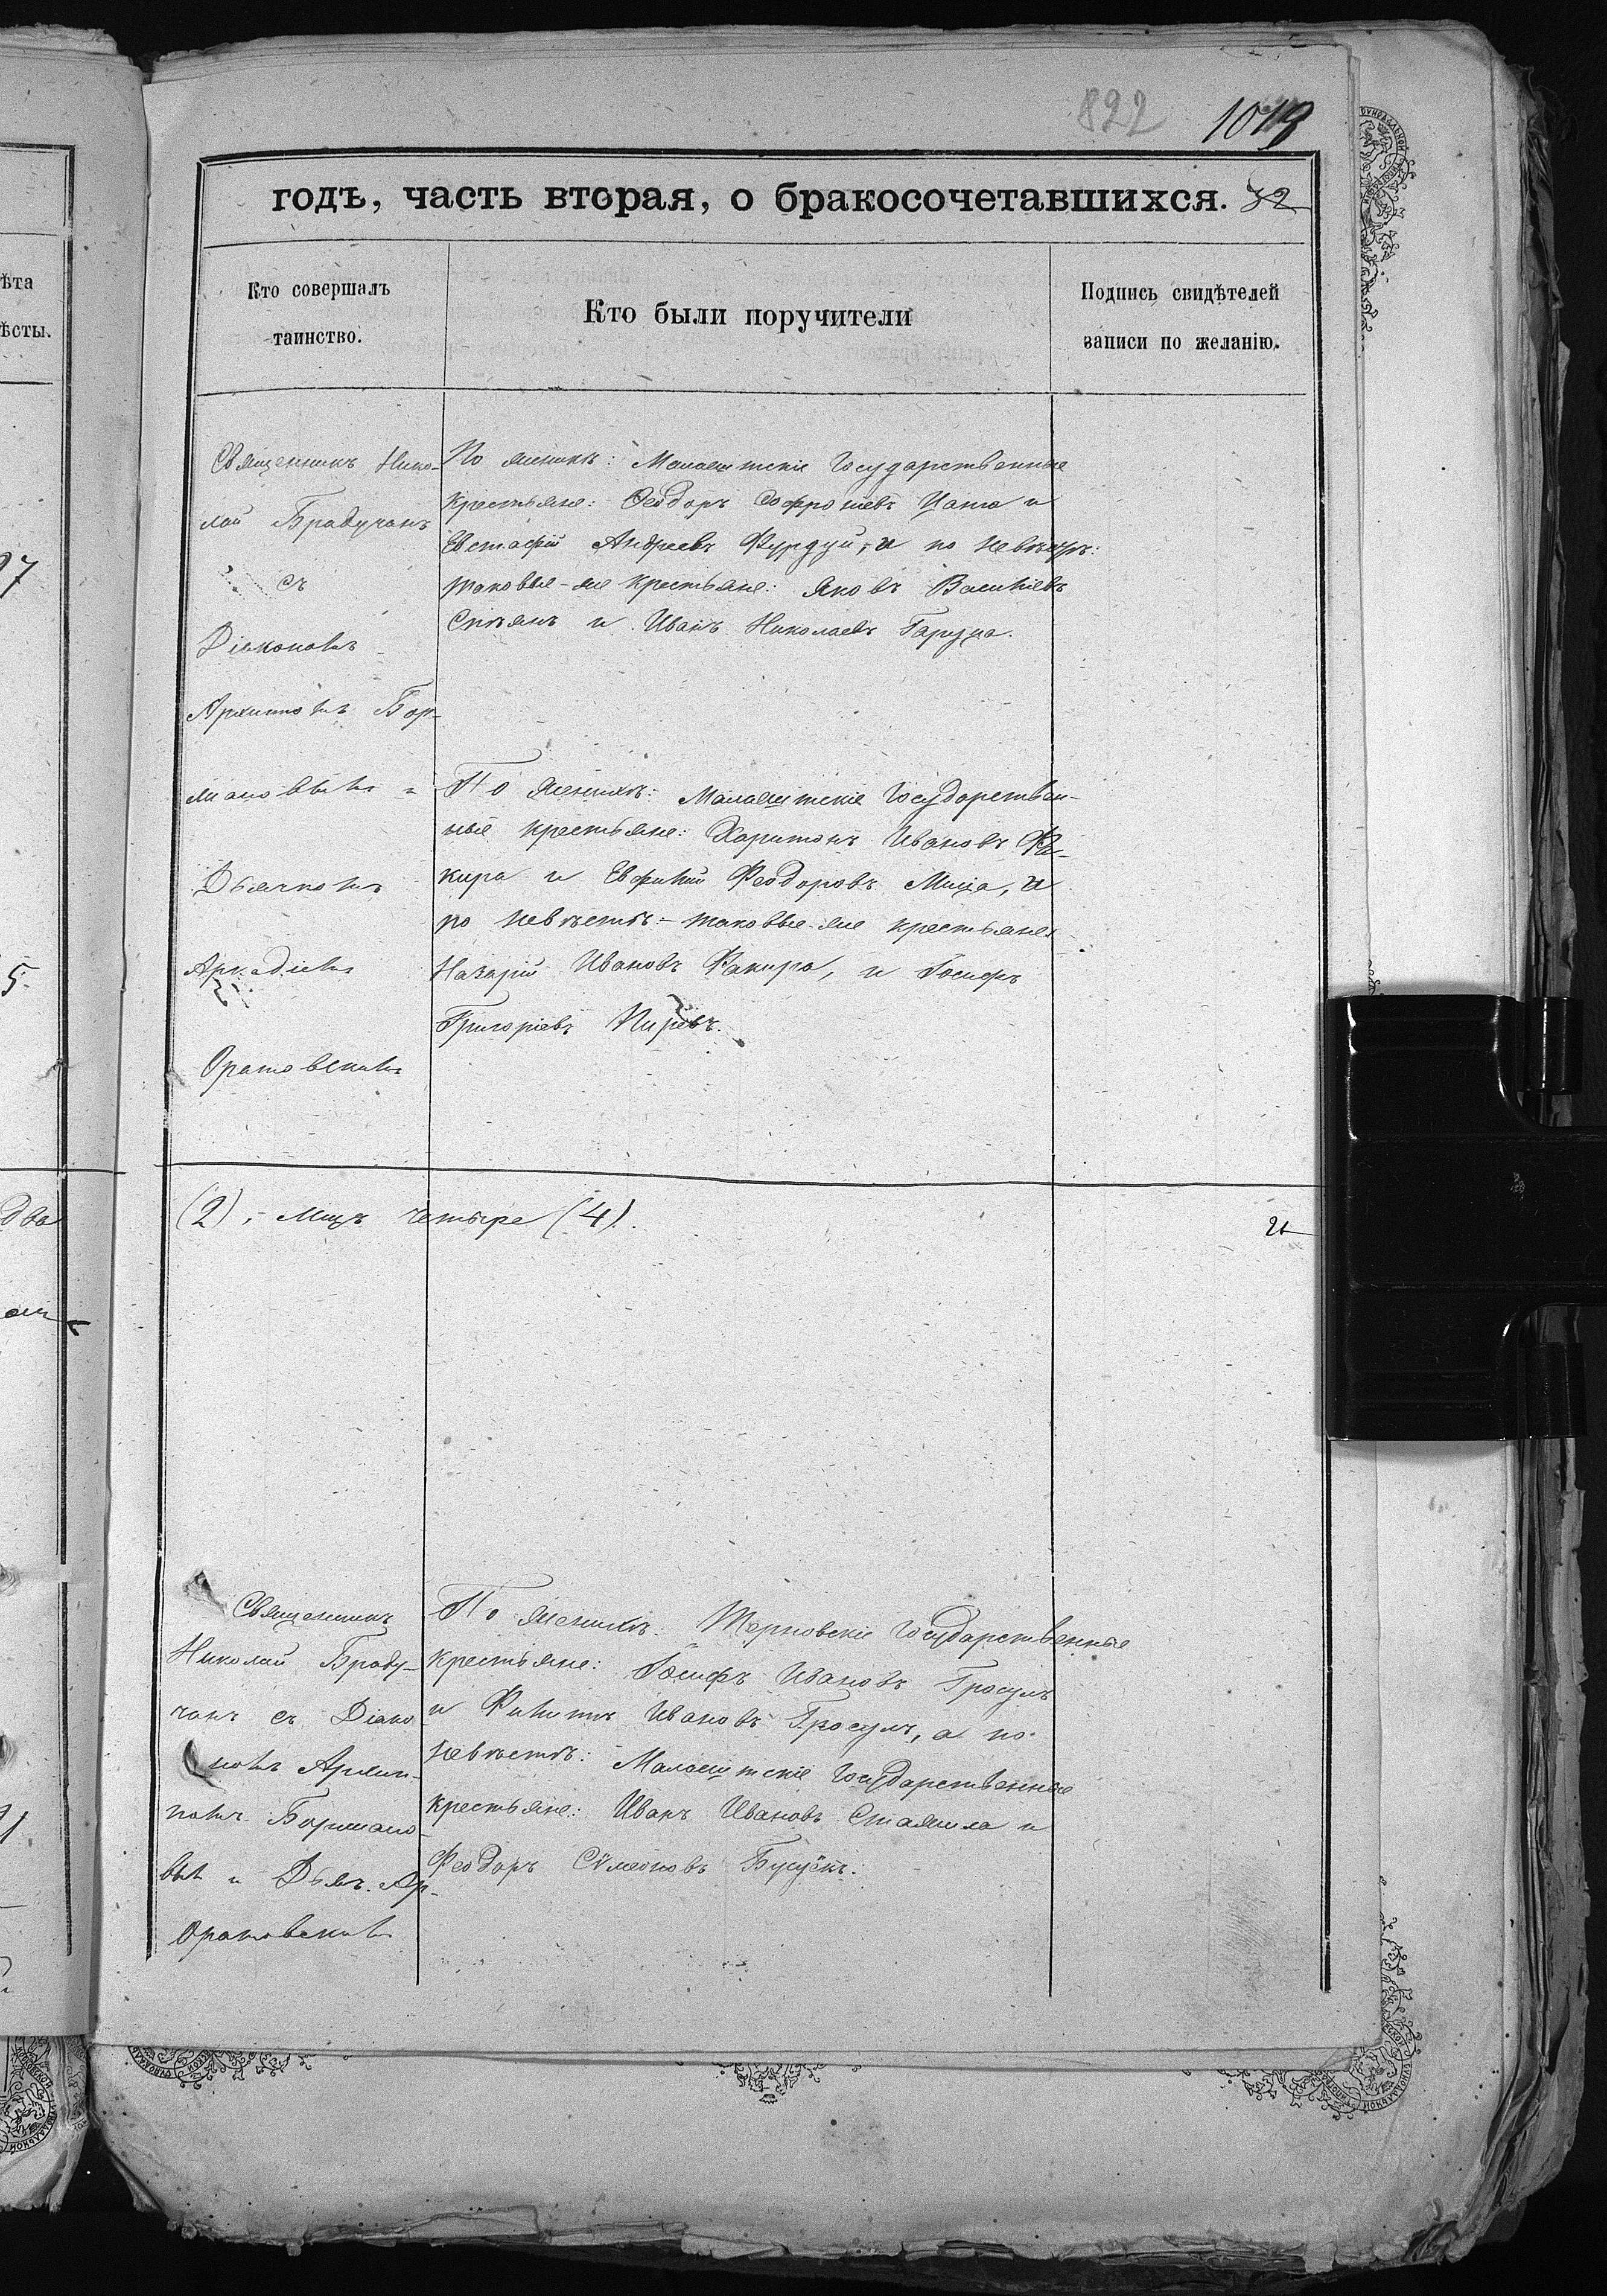 822 1019
годъ, часть вторая, о бракосочетавшихся. 32
Кто совершалъ
таинство.
Кто были поручители
Подпись свидѣтелей
записи по желанію.
ѣта
ѣсты.
Священникъ Нико-
лай Брадучанъ
съ
Діакономъ
Архипомъ Бор-
мановымъ и
Дьячкомъ
Аркадіемъ
Оратовскимъ
По женихѣ: Малаештскіе Государственные
крестьяне: Ѳеодоръ Софроніевъ Цапа и
Евстафій Андреевъ Фурдуй, а по невѣстѣ:
таковые-же крестьяне: Яковъ Васильевъ
Стоянъ и Иванъ Николаевъ Гарузна.
По женихѣ: Малаештскіе Государствен-
ные крестьяне: Харитонъ Ивановъ Фа-
кира и Евфимій Феодоровъ Мица, а
по невѣстѣ - таковые-же крестьяне:
Назарій Ивановъ Факира, и Іосифъ
Григоріевъ
(2), лицъ четыре (4).
Священникъ
Николай Браду-
чанъ съ Діако-
номъ Архип-
помъ Бормано-
вым и Дьяч. Ар.
Оратовскимъ
По женихѣ: Терновскіе Государственные
крестьяне: Іосифъ Ивановъ Гросулъ
и Филиппъ Ивановъ Гросулъ, а по
невѣстѣ: Малаештскіе Государственные
крестьяне: Иванъ Ивановъ Стамила и
Феодоръ Сѵмеоновъ Бусуёкъ.